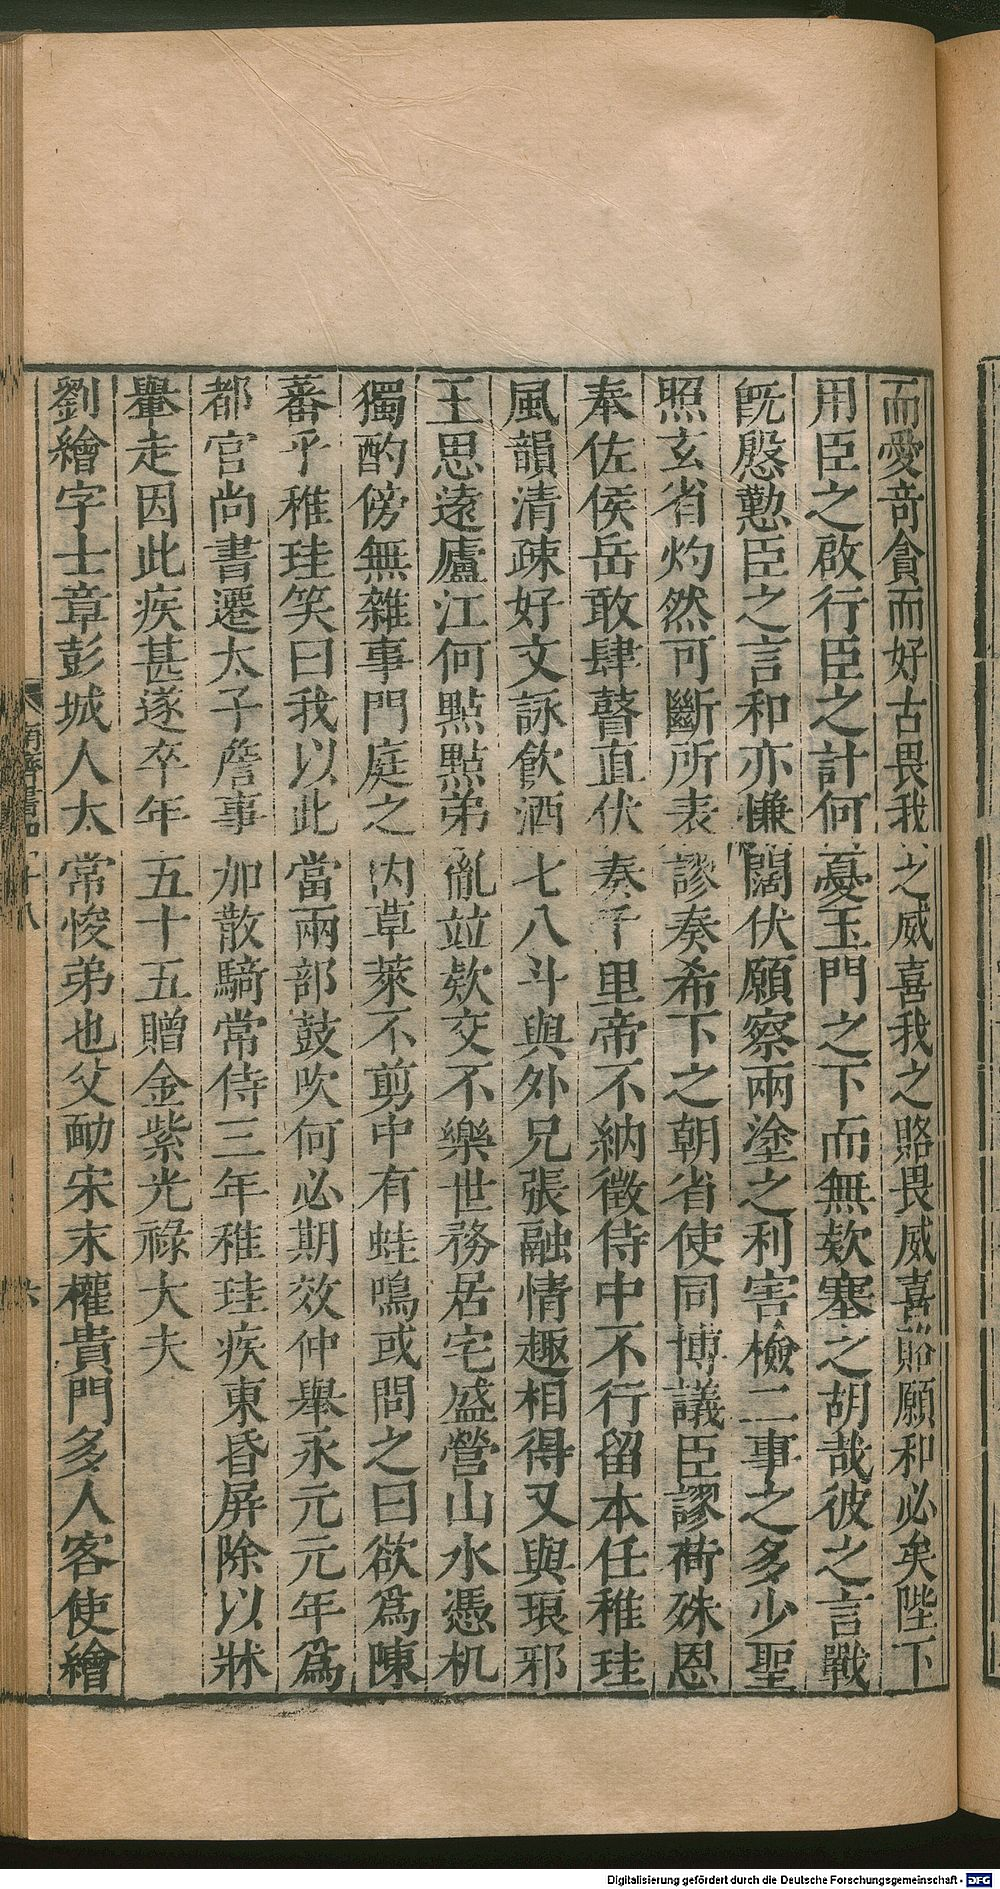 而愛奇貪而好古畏我之威喜我之賂畏威喜賂願和必矣陛下
用臣之啟行臣之計何憂玉門之下而無欵塞之胡哉彼之言戰
旣慇懃臣之言和亦慊闊伏願察兩塗之利害檢二事之多少聖
照玄省灼然可斷所表謬奏希下之朝省使同博議臣謬荷殊恩
奉佐侯岳敢肆瞽直伏奏千里帝不納徵侍中不行留本任稚珪
風韻清疎好文詠飲酒七八斗與外兄張融情趣相得又與琅邪
王思遠廬江何點點弟胤竝欵交不樂世務居宅盛營山水憑机
獨酌傍無雜事門庭之内草萊不剪中有蛙鳴或問之曰欲爲陳
蕃乎稚珪笑曰我以此當兩部鼓吹何必期效仲舉永元元年爲
都官尚書遷太子詹事加散騎常侍三年稚珪疾東昏屏除以牀
轝走因此疾甚遂卒年五十五贈金紫光祿大夫
劉繪字士章彭城人太常悛弟也父勔宋末權貴門多人客使繪
南齊書四十八
六
Digitalisierung gefördert durch die Deutsche Forschungsgemeinschaft - DFG